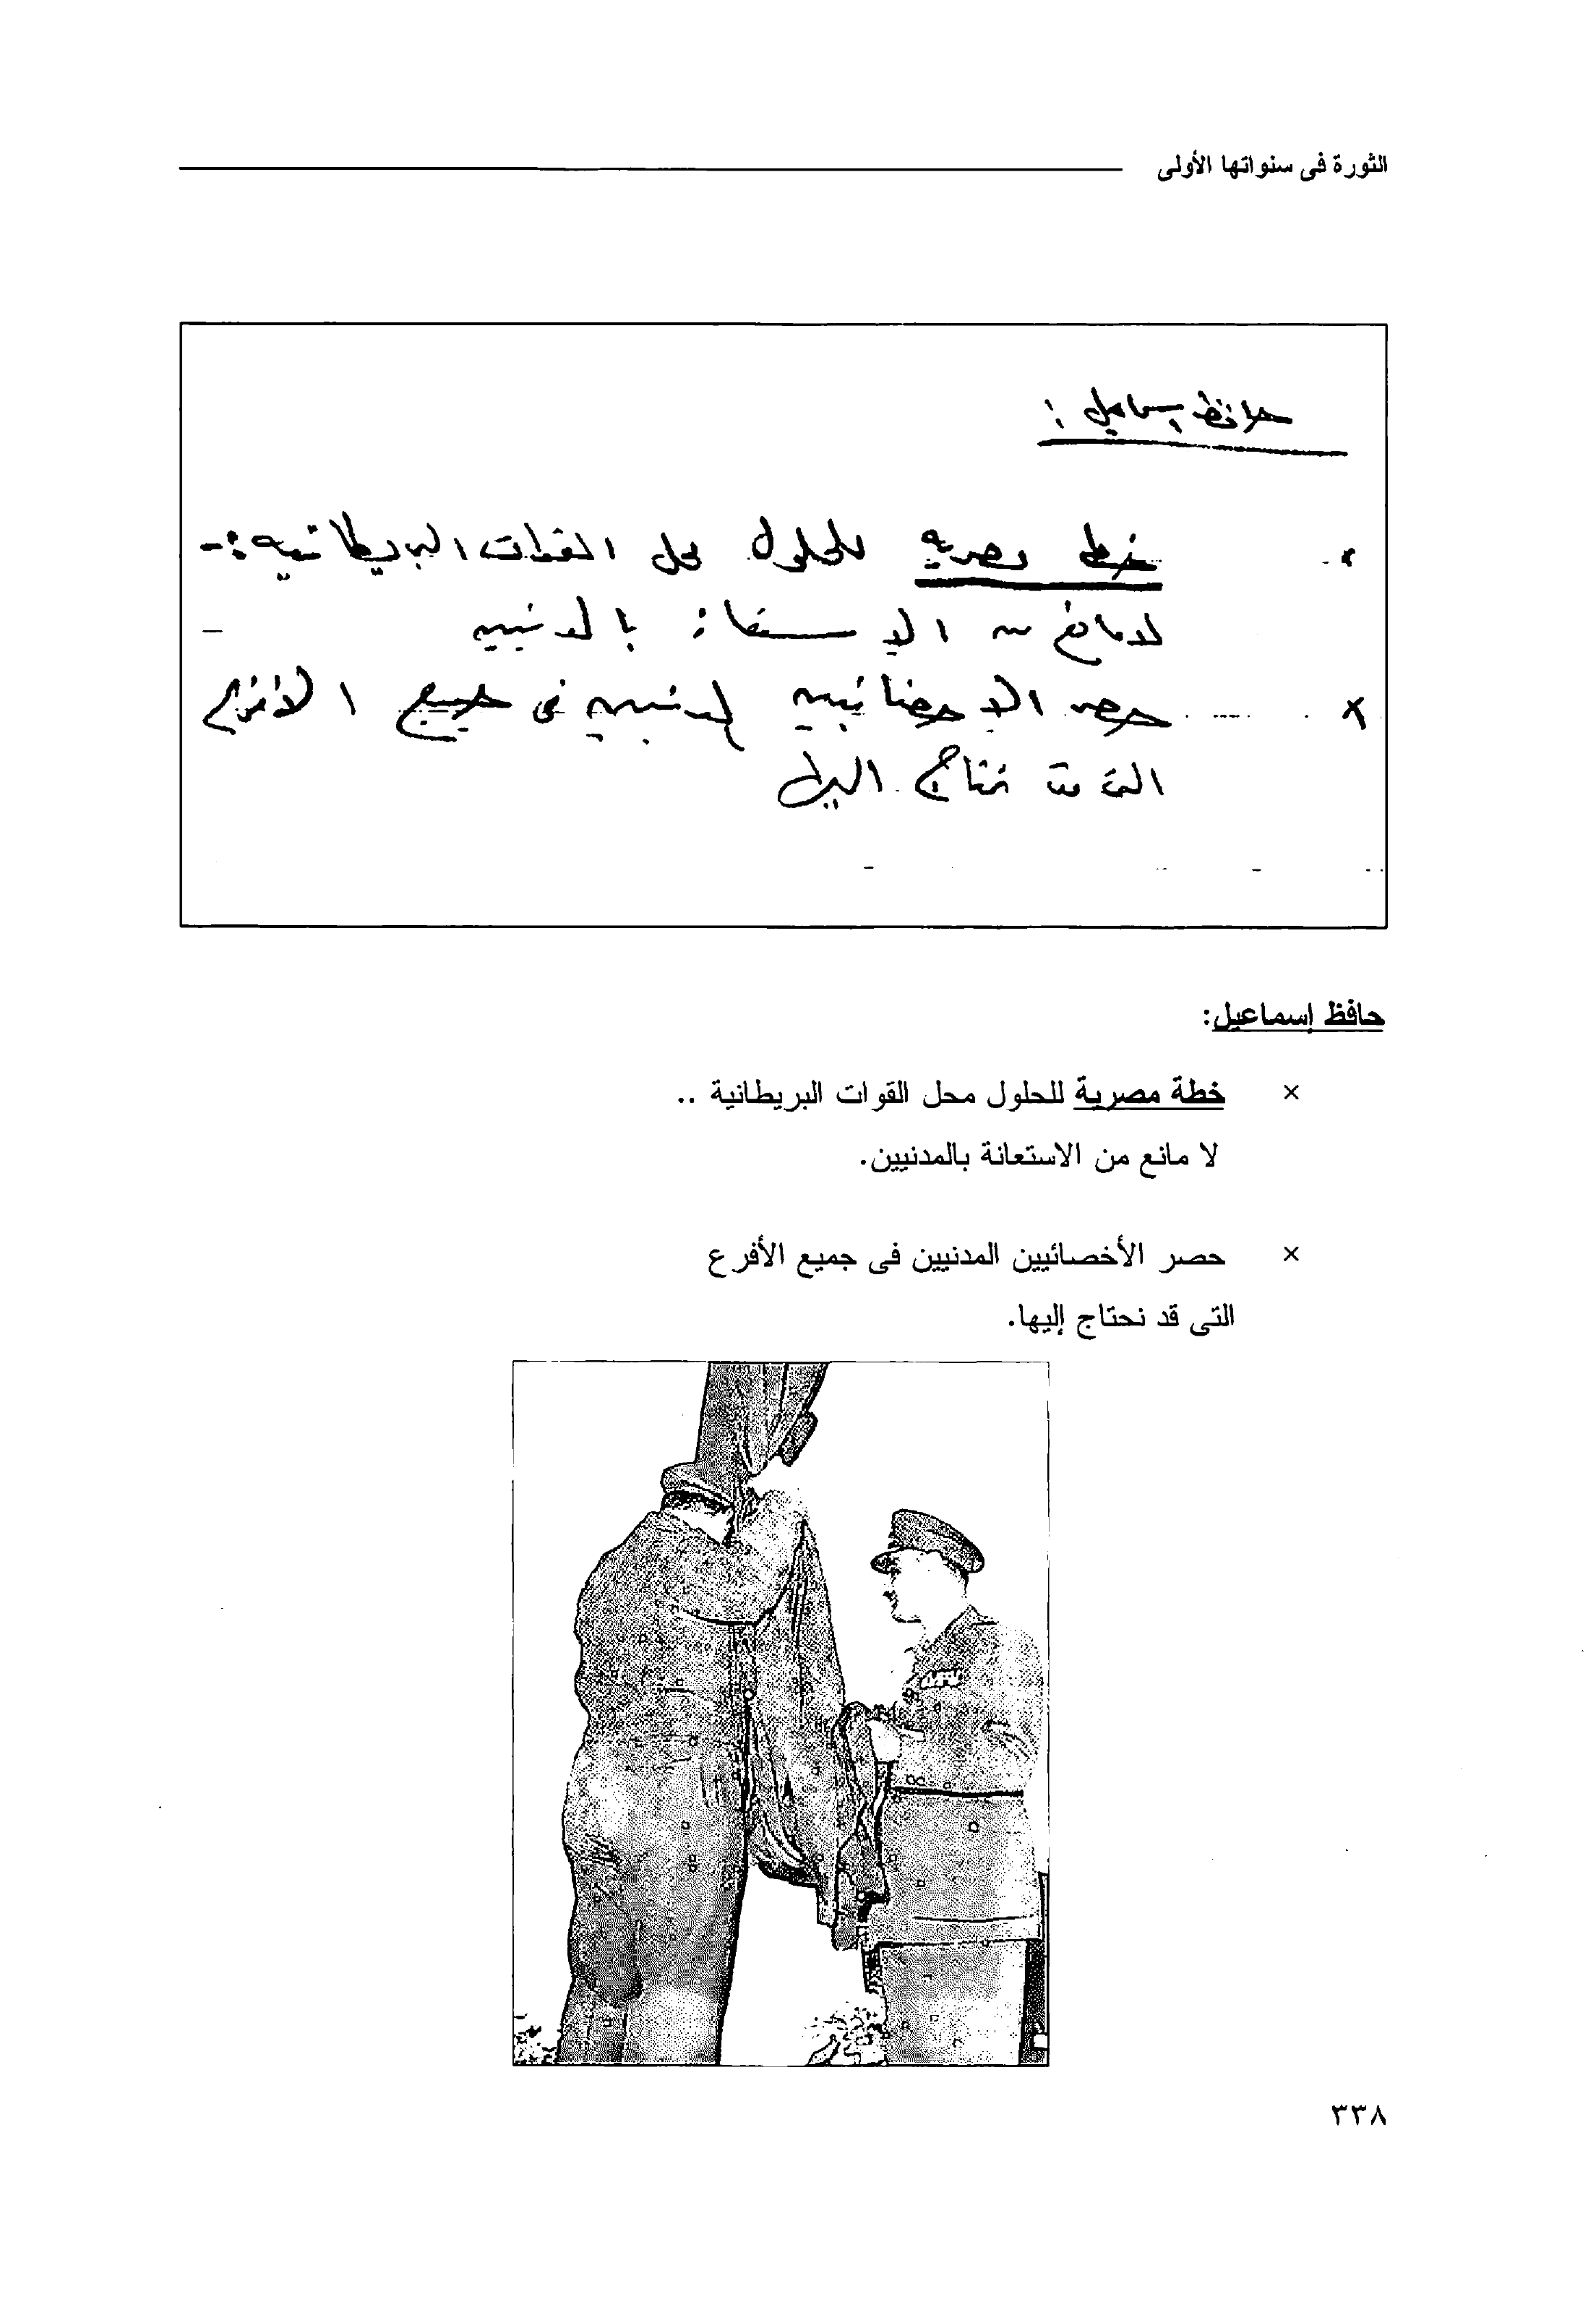 الثورة فى سنواتها الأولى
حافظ إسماعيل :
× خطة مصرية للحلول محل القوات البريطانية :-
لا مانع من الاستعانة بالمدنيين
× حصر الاخصائيين المدنيين فى جميع الأفرع
التى قد نحتاج إليها
حافظ إسماعيل:
× خطة مصرية للحلول محل القوات البريطانية ..
لا مانع من الاستعانة بالمدنيين.
× حصر الأخصائيين المدنيين فى جميع الأفرع
التى قد نحتاج إليها.
٣٣٨